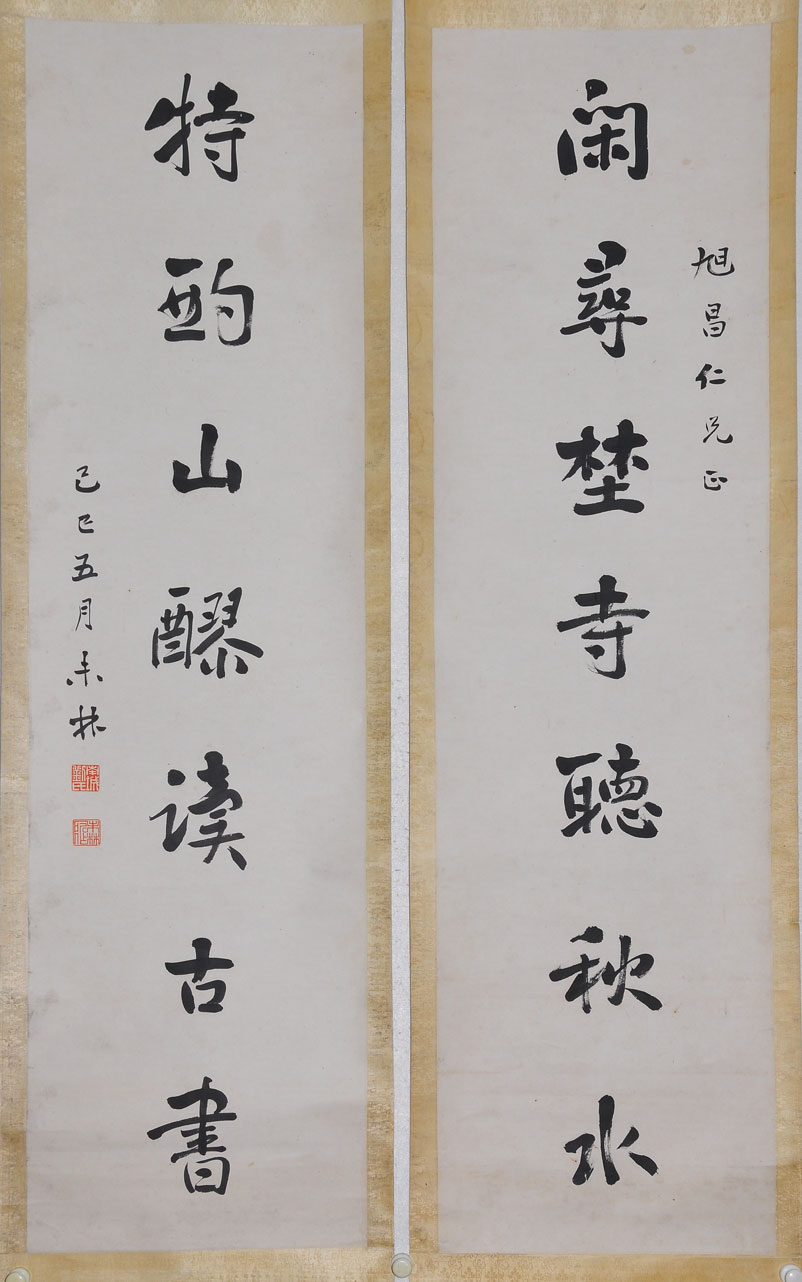 旭昌仁兄正
閑尋埜寺聽秋水
特酌山醪讀古書
己巳五月耒林